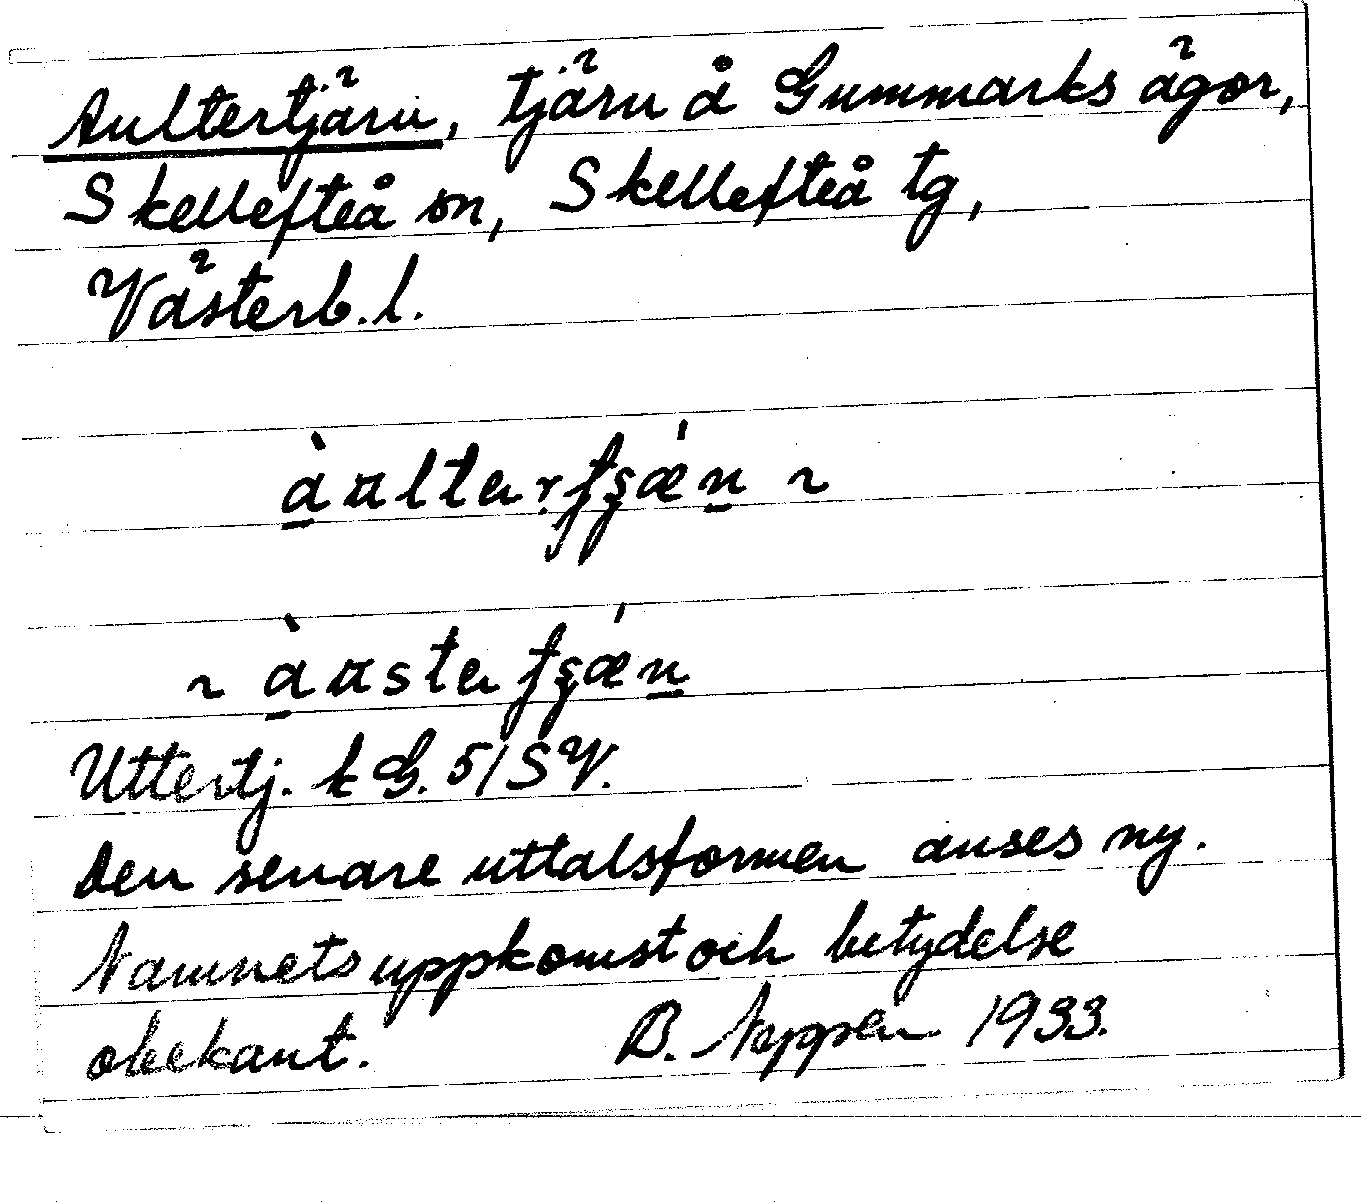 Aultertjärn, tjärn å Gummarks ägor,
Skellefteå sn, Skellefteå tg,
Västerb. l.
Uttertj. k G. 5/SV.
Den senare uttalsformen anses ny.
Namnets uppkomst och betydelse
obekant. B. 1933.